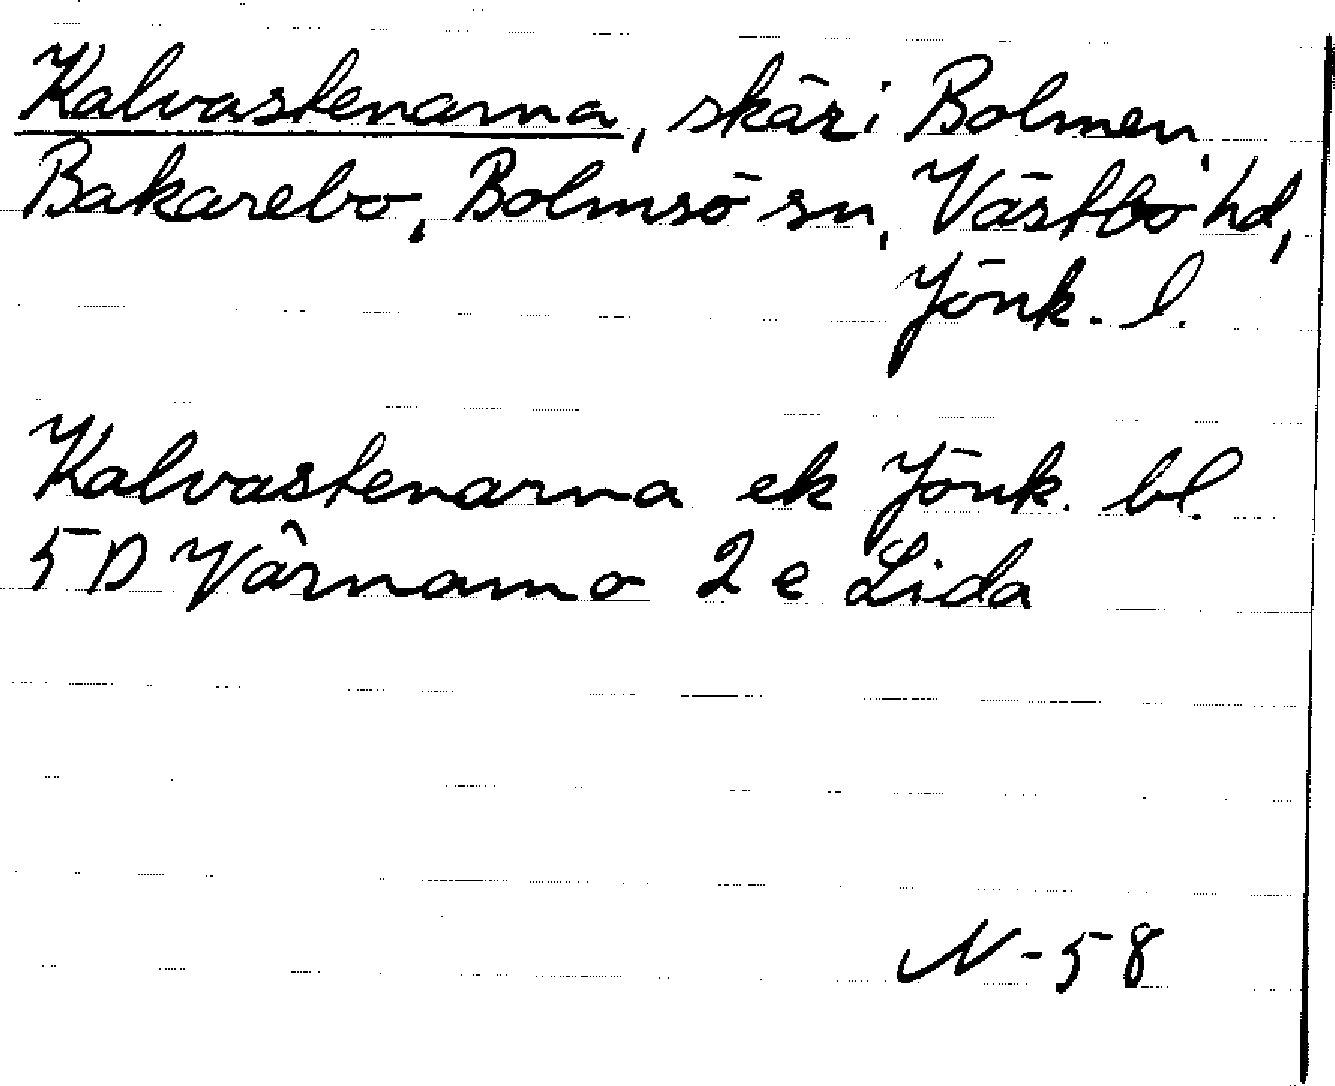 Kalvastenarna, skär i Bolmen,
Bakarebo, Bolmsö sn, Västbo hd,
Jönk. l.
Kalvastenarna ek Jönk. bl.
5 D Värnamo 2 e Lida
N-58